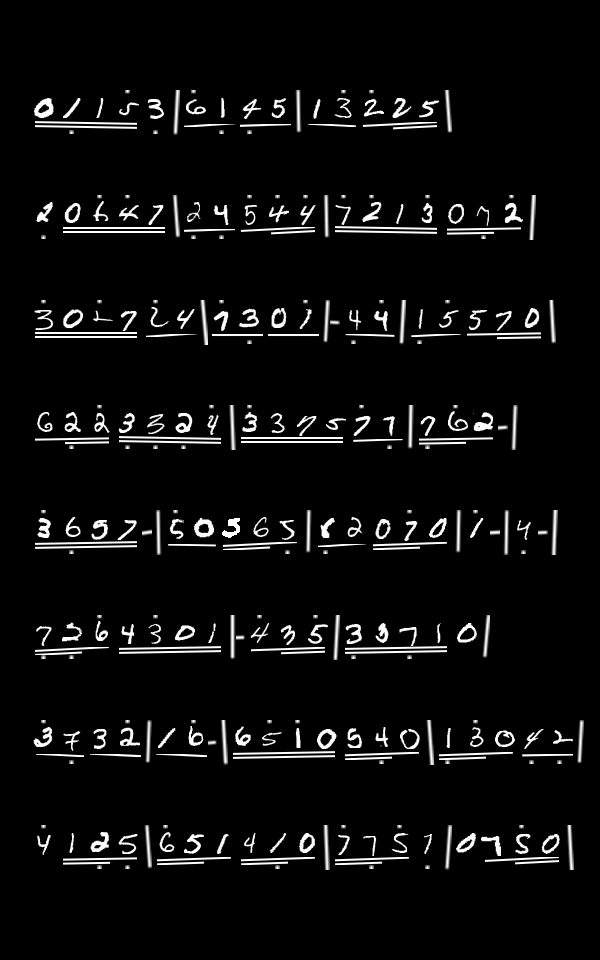 0 1 1 5 3 | 6 1 4 5 | 1 3 2 2 5 |
2 0 6 4 7 | 2 4 5 4 4 | 7 2 1 3 0 7 2 |
3 0 1 7 2 4 | 7 3 0 1 | - 4 4 | 1 5 5 7 0 |
6 2 2 3 3 2 4 | 3 3 7 5 7 7 | 7 6 2 - |
3 6 5 7 - | 5 0 5 6 5 | 8 2 0 7 0 | 1 - | 4 - |
7 2 6 4 3 0 1 | - 4 3 5 | 3 3 7 1 0 |
3 7 3 2 | 1 6 - | 6 5 1 0 5 4 0 | 1 3 0 4 2 |
4 1 2 5 | 6 5 1 4 1 0 | 7 7 5 7 | 0 7 5 0 |